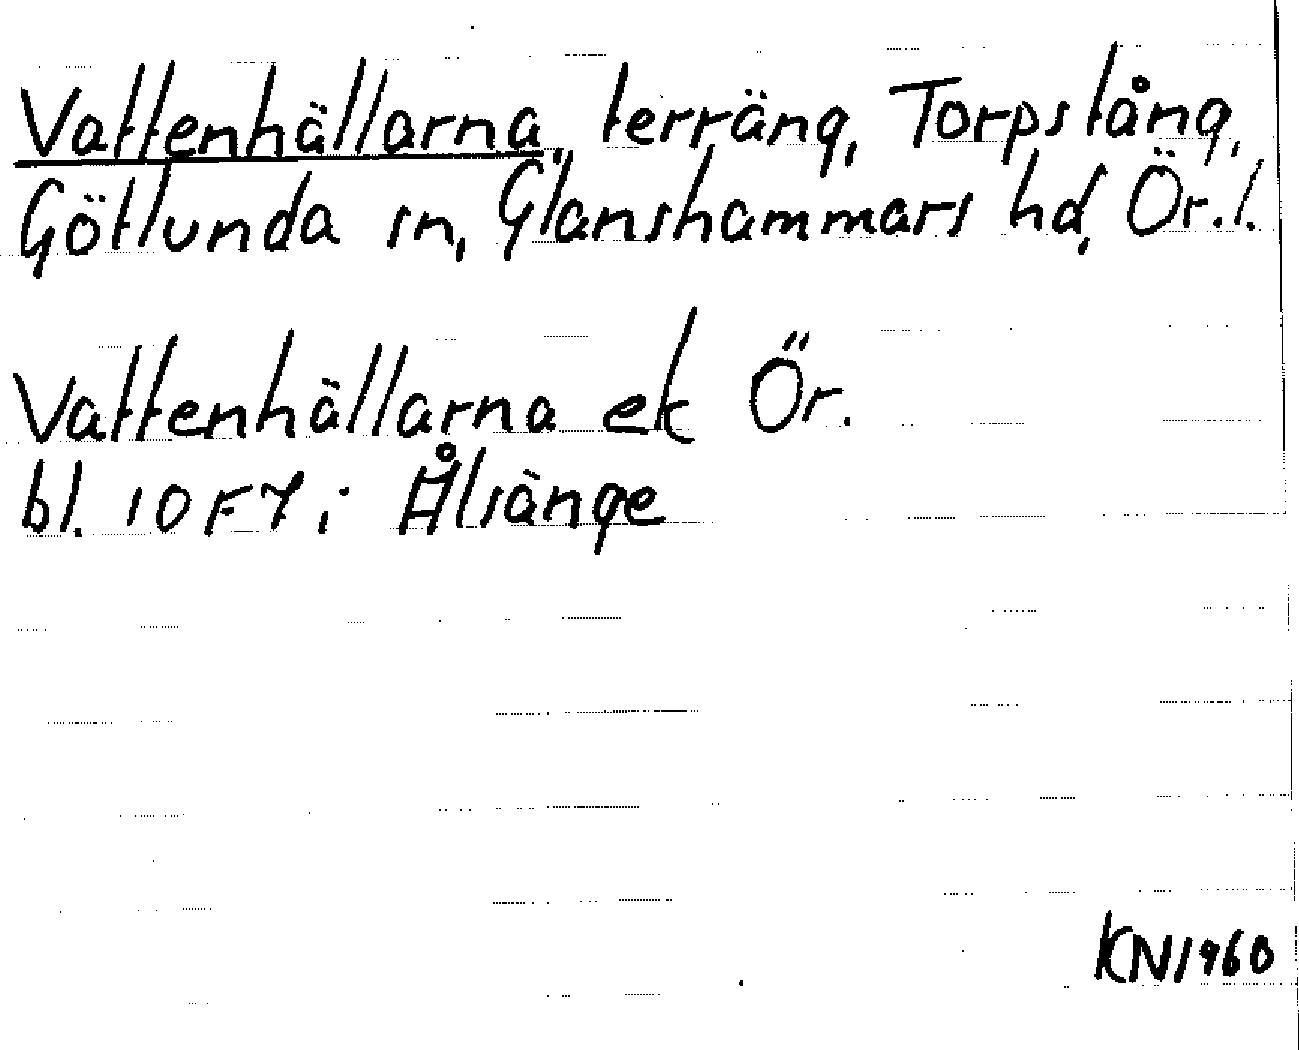 Vattenhällarna, terräng, Torpstång,
Götlunda sn, Glanshammars hd, Ör. l.
Vattenhällarna ek Ör.
bl. 10F7i Ålsänge
KN1960